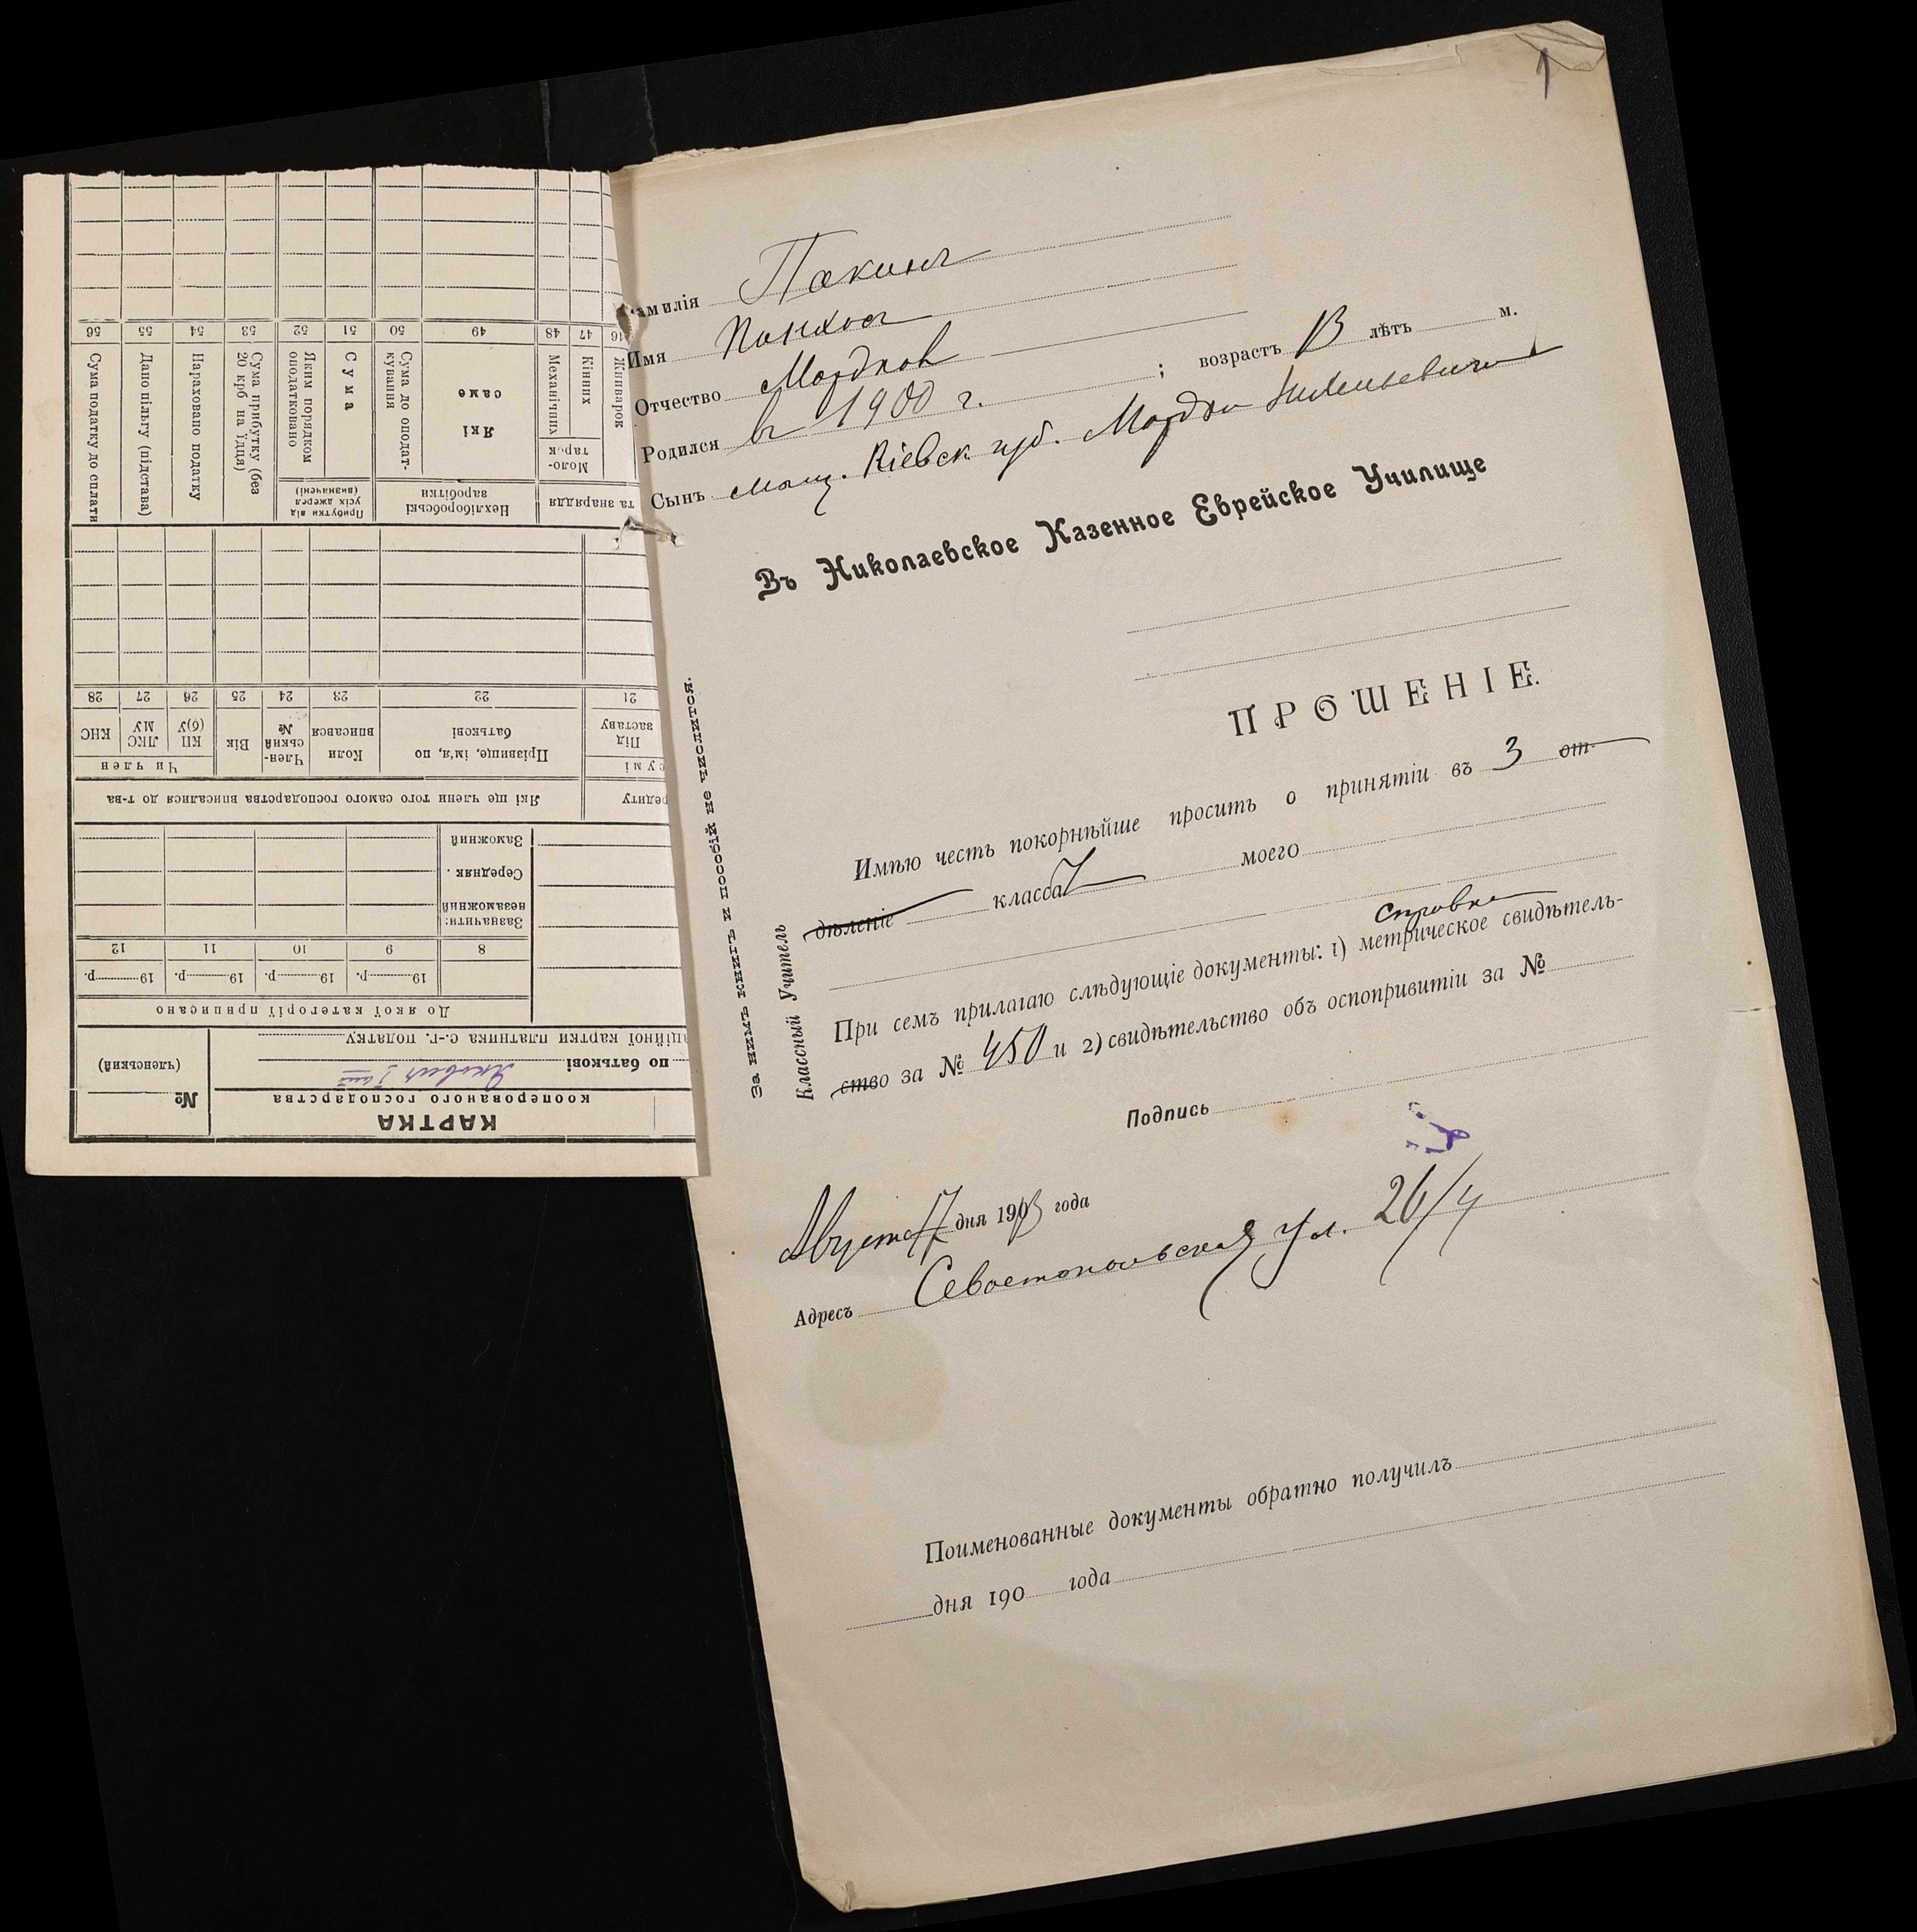 Фамилія Пакинъ
Имя Пинхос
Отчество Мордков
Родился въ 1900 г. ; возрастъ 13 лѣтъ м.
Сынъ мѣщ. Кіевск губ. Мордки
Въ Николаевское Казенное Еврейское Училище
ПРОШЕНІЕ.
Имѣю честь покорнѣйше просить о принятіи въ 3 от-
дѣленіе класса моего
справка
При семъ прилагаю слѣдующіе документы: 1) метрическое свидѣтель-
ство за № 450 и 2) свидѣтельство объ оспопривитіи за №
Подпись
Августа 17 дня 1913 года
Адресъ Севастопольская ул. 26/4
Поименованные документы обратно получилъ
дня 190 года
За нимъ книгъ и пособій не числится.
Классный Учитель
КАРТКА
кооперованого господарства
№
(членський)
по батькові
ційної картки платника с.-г. податку
До якої категорії приписано
19 р. 19 р. 19 р. 19 р.
8 9 10 11 12
Зазначити:
незаможний
Середняк
Заможний
редиту
Які ще члени того самого господарства вписалися до т-ва
сумі
Під заставу
Прізвище, ім'я, по батькові
Коли вписався
Член-ський №
Вік
Чи член
КП(б)У
ЛКСМУ
КНС
21 22 23 24 25 26 27 28
та знаряддя
Нехліборобські заробітки
Прибутки від усіх джерел (визначені)
Жниварок
Моло-тарок
Кінних
Механічних
Які саме
Сума до оподат-кування
Сума
Яким порядком оподатковано
Сума прибутку (без 20 крб на їдця)
Нараховано податку
Дано пільгу (підстава)
Сума податку до сплати
46 47 48 49 50 51 52 53 54 55 56